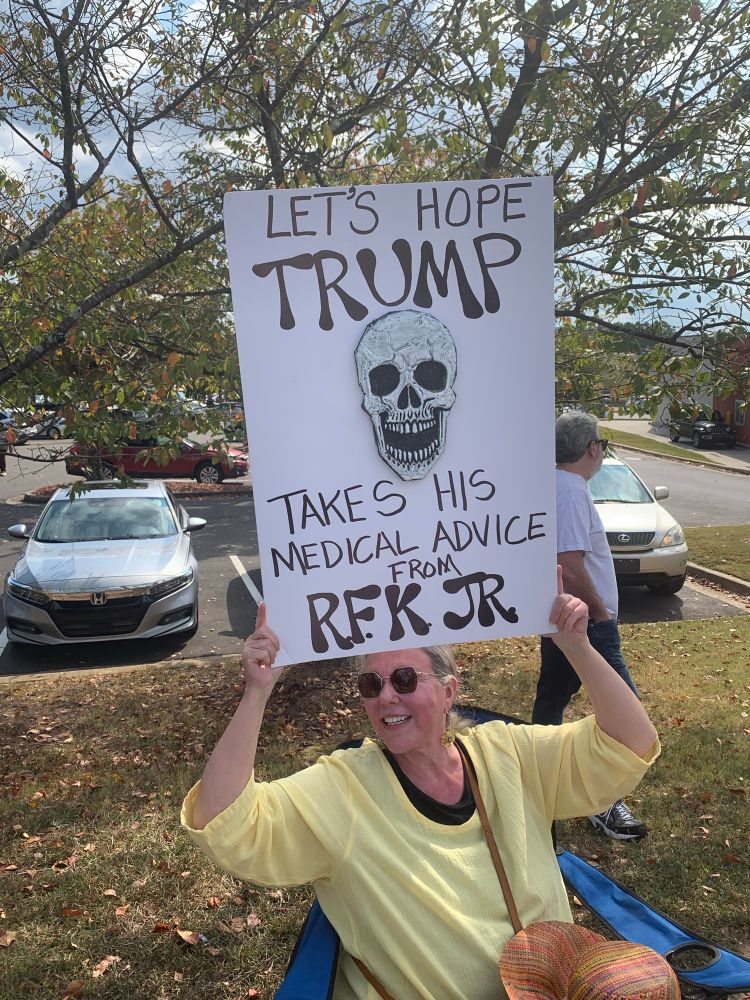 LET'S HOPE
TRUMP
TAKES HIS
MEDICAL ADVICE
FROM
R.F.K. JR.